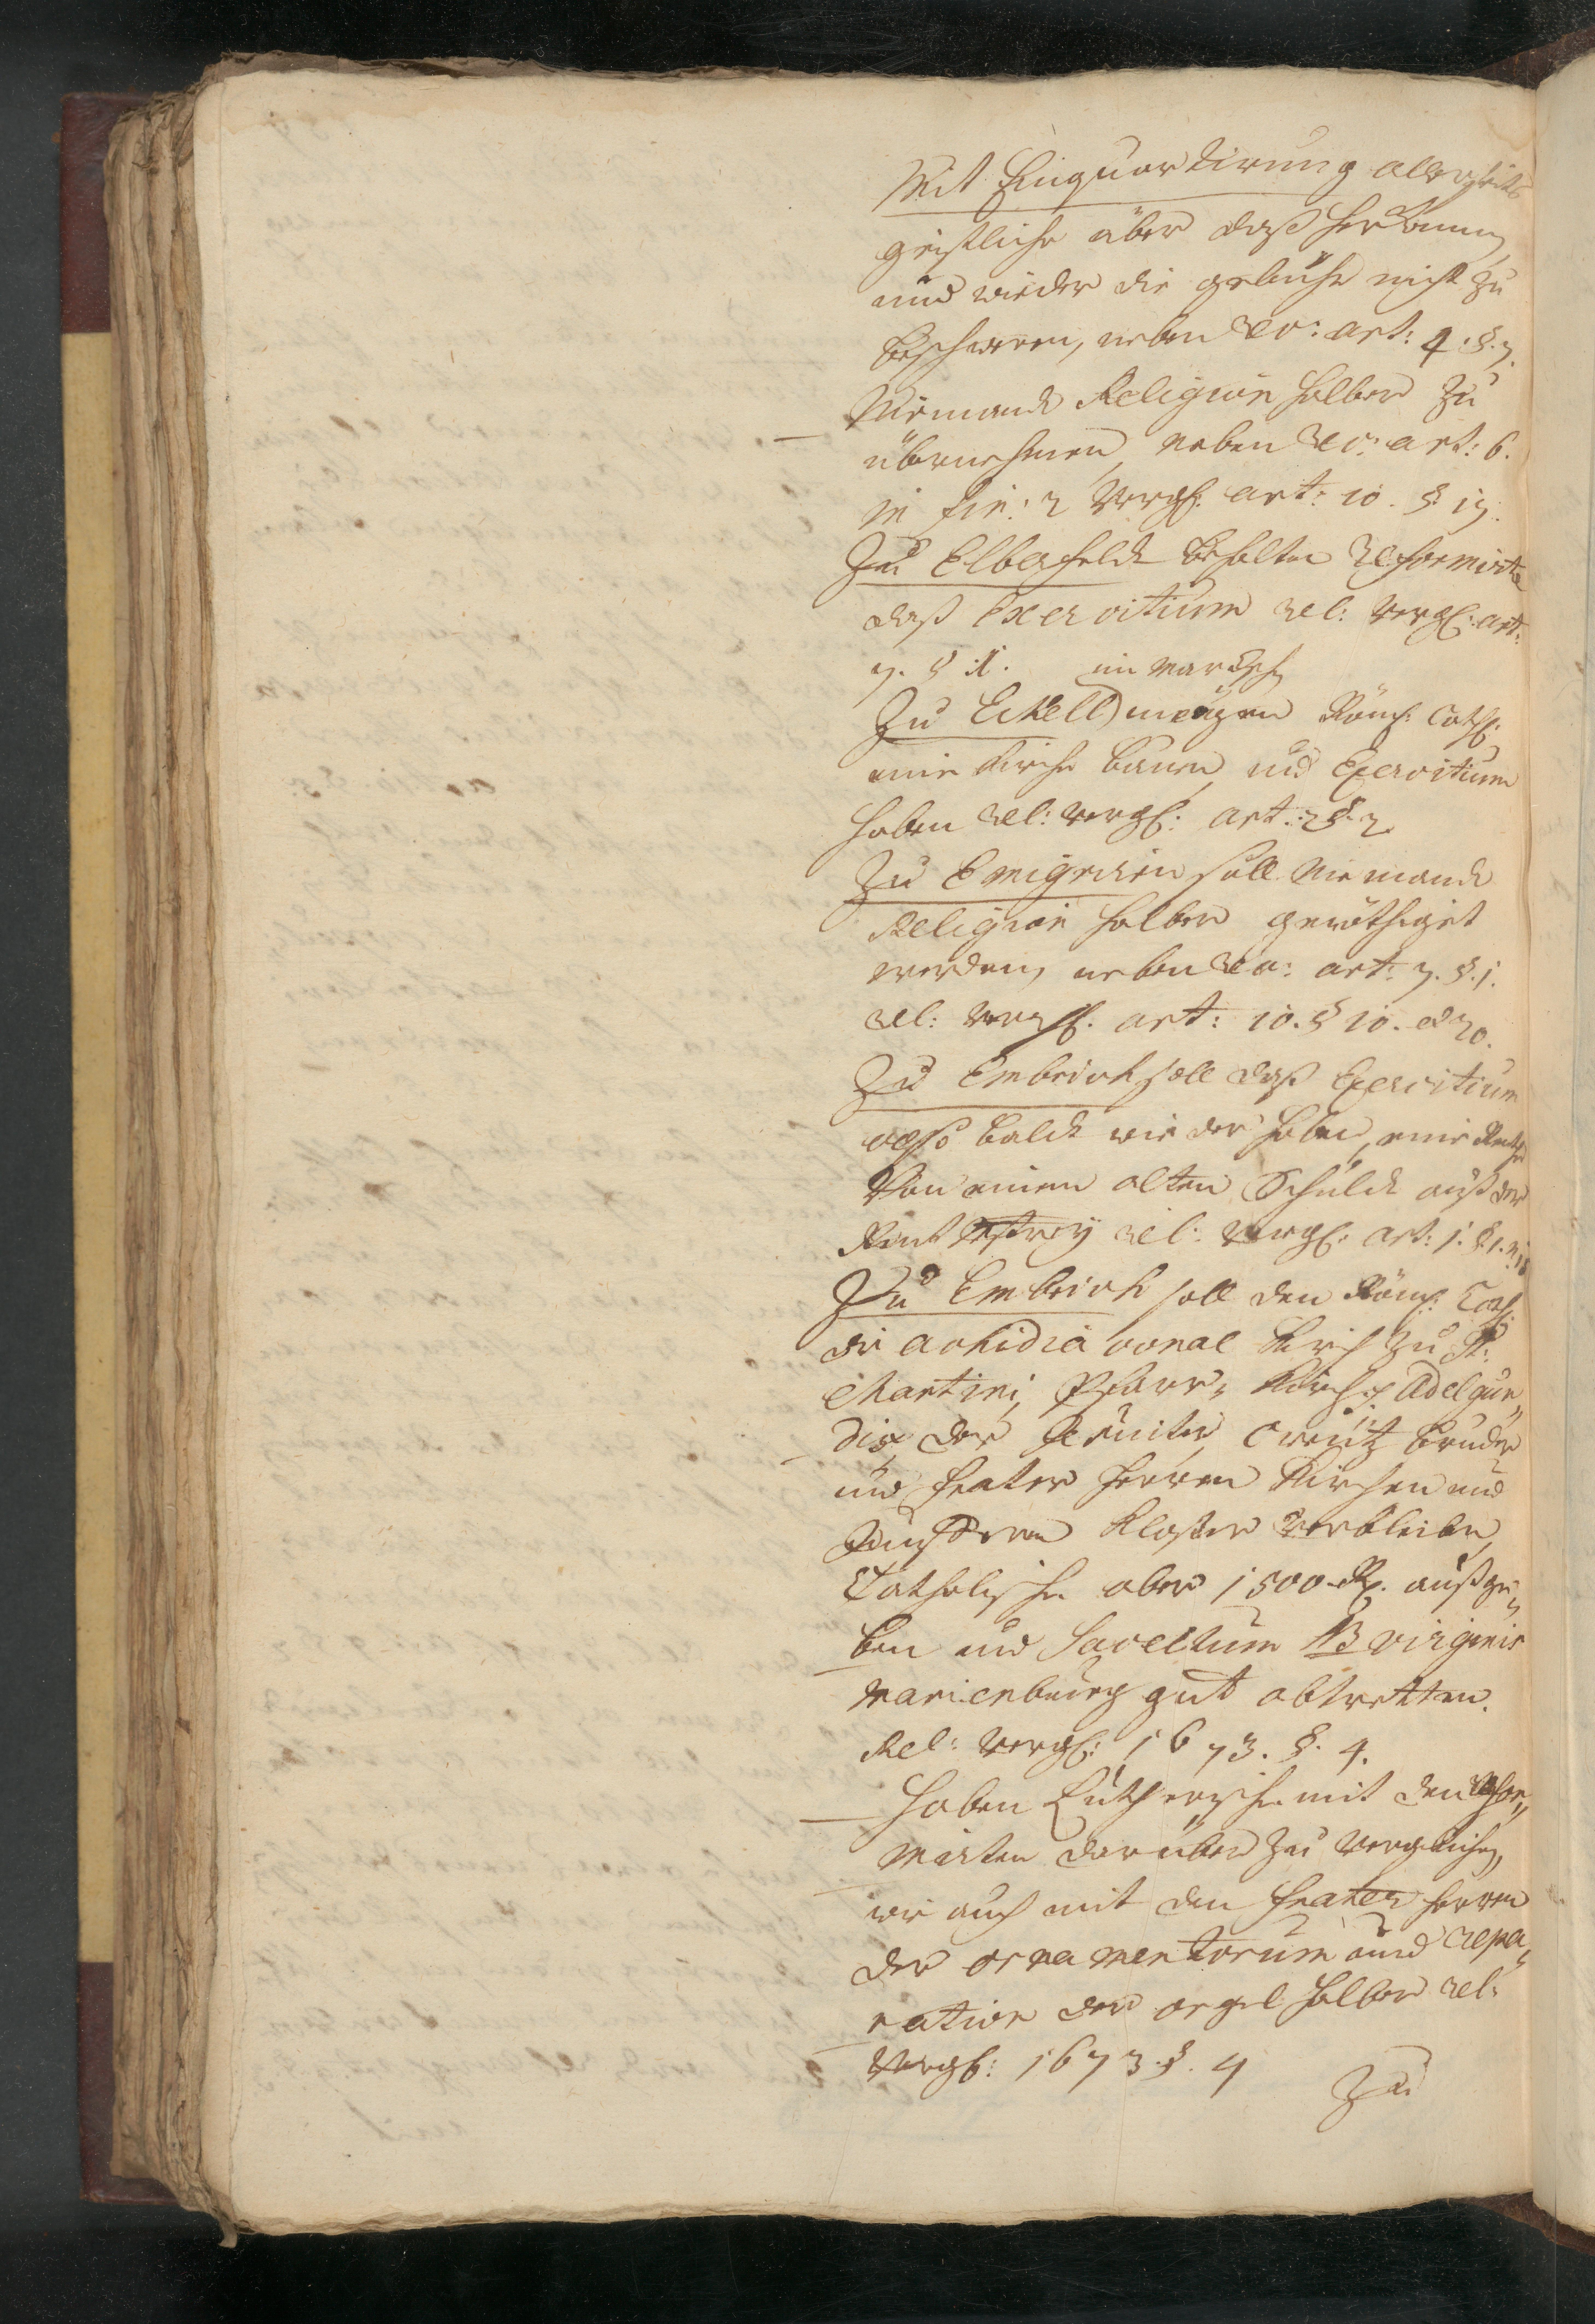 Mit Einquartirung allerseits
geistliche über daß herkommen
und wieder die gebühr nicht zu
beschweren, neben rec: art: 4. §. 7.
Niemandt Religion halber zu
übernehmen, neben rec: art: 6.
in fin: 2 Vergl: art: 10. § 17.
Zu Elberfeldt behalten Reformirte
daß Exercitium rel: Vergl: art:
7. § 1.
Zu Eckell mögen Röm: Cath:
eine Kirche bauen, und Exercitium
haben rel: vergl: art: 2 §. 2.
Zu Emigriren soll Niemandt
Religion halber genöthiget
werden, neben rec: art: 7. §. 1.
rel: vergl: art: 10. § 10. et 20.
Zu Embrich soll daß Exercitium
also baldt wieder haben, eine Renthe
Von einer alten Schuldt auß der
Rentmestrey rel: Vergl: art: 1. §. 1. n: 18
Zu Embrich soll den Röm: Cath:
die Archidiaconal Kirch zu St:
Martini, Pfarr- Kirch S. Adelgun„
dis, der Jesuiter, Creutz brüder
und frater herren Kirchen und
Jungferen Kloster verbleiben,
Catholische aber 1500 R. außge„
ben und Sacellum B virginis
Marienburg gut abtretten.
Rel: Vergl: 1673. §. 4.
haben Lutherische mit den Refor„
mirten darüber zu vergleichen,
wie auch mit den frater herren
der ornamentorum und repa„
ration der orgel halber rel:
Vergl: 1673. §. 4
Zu